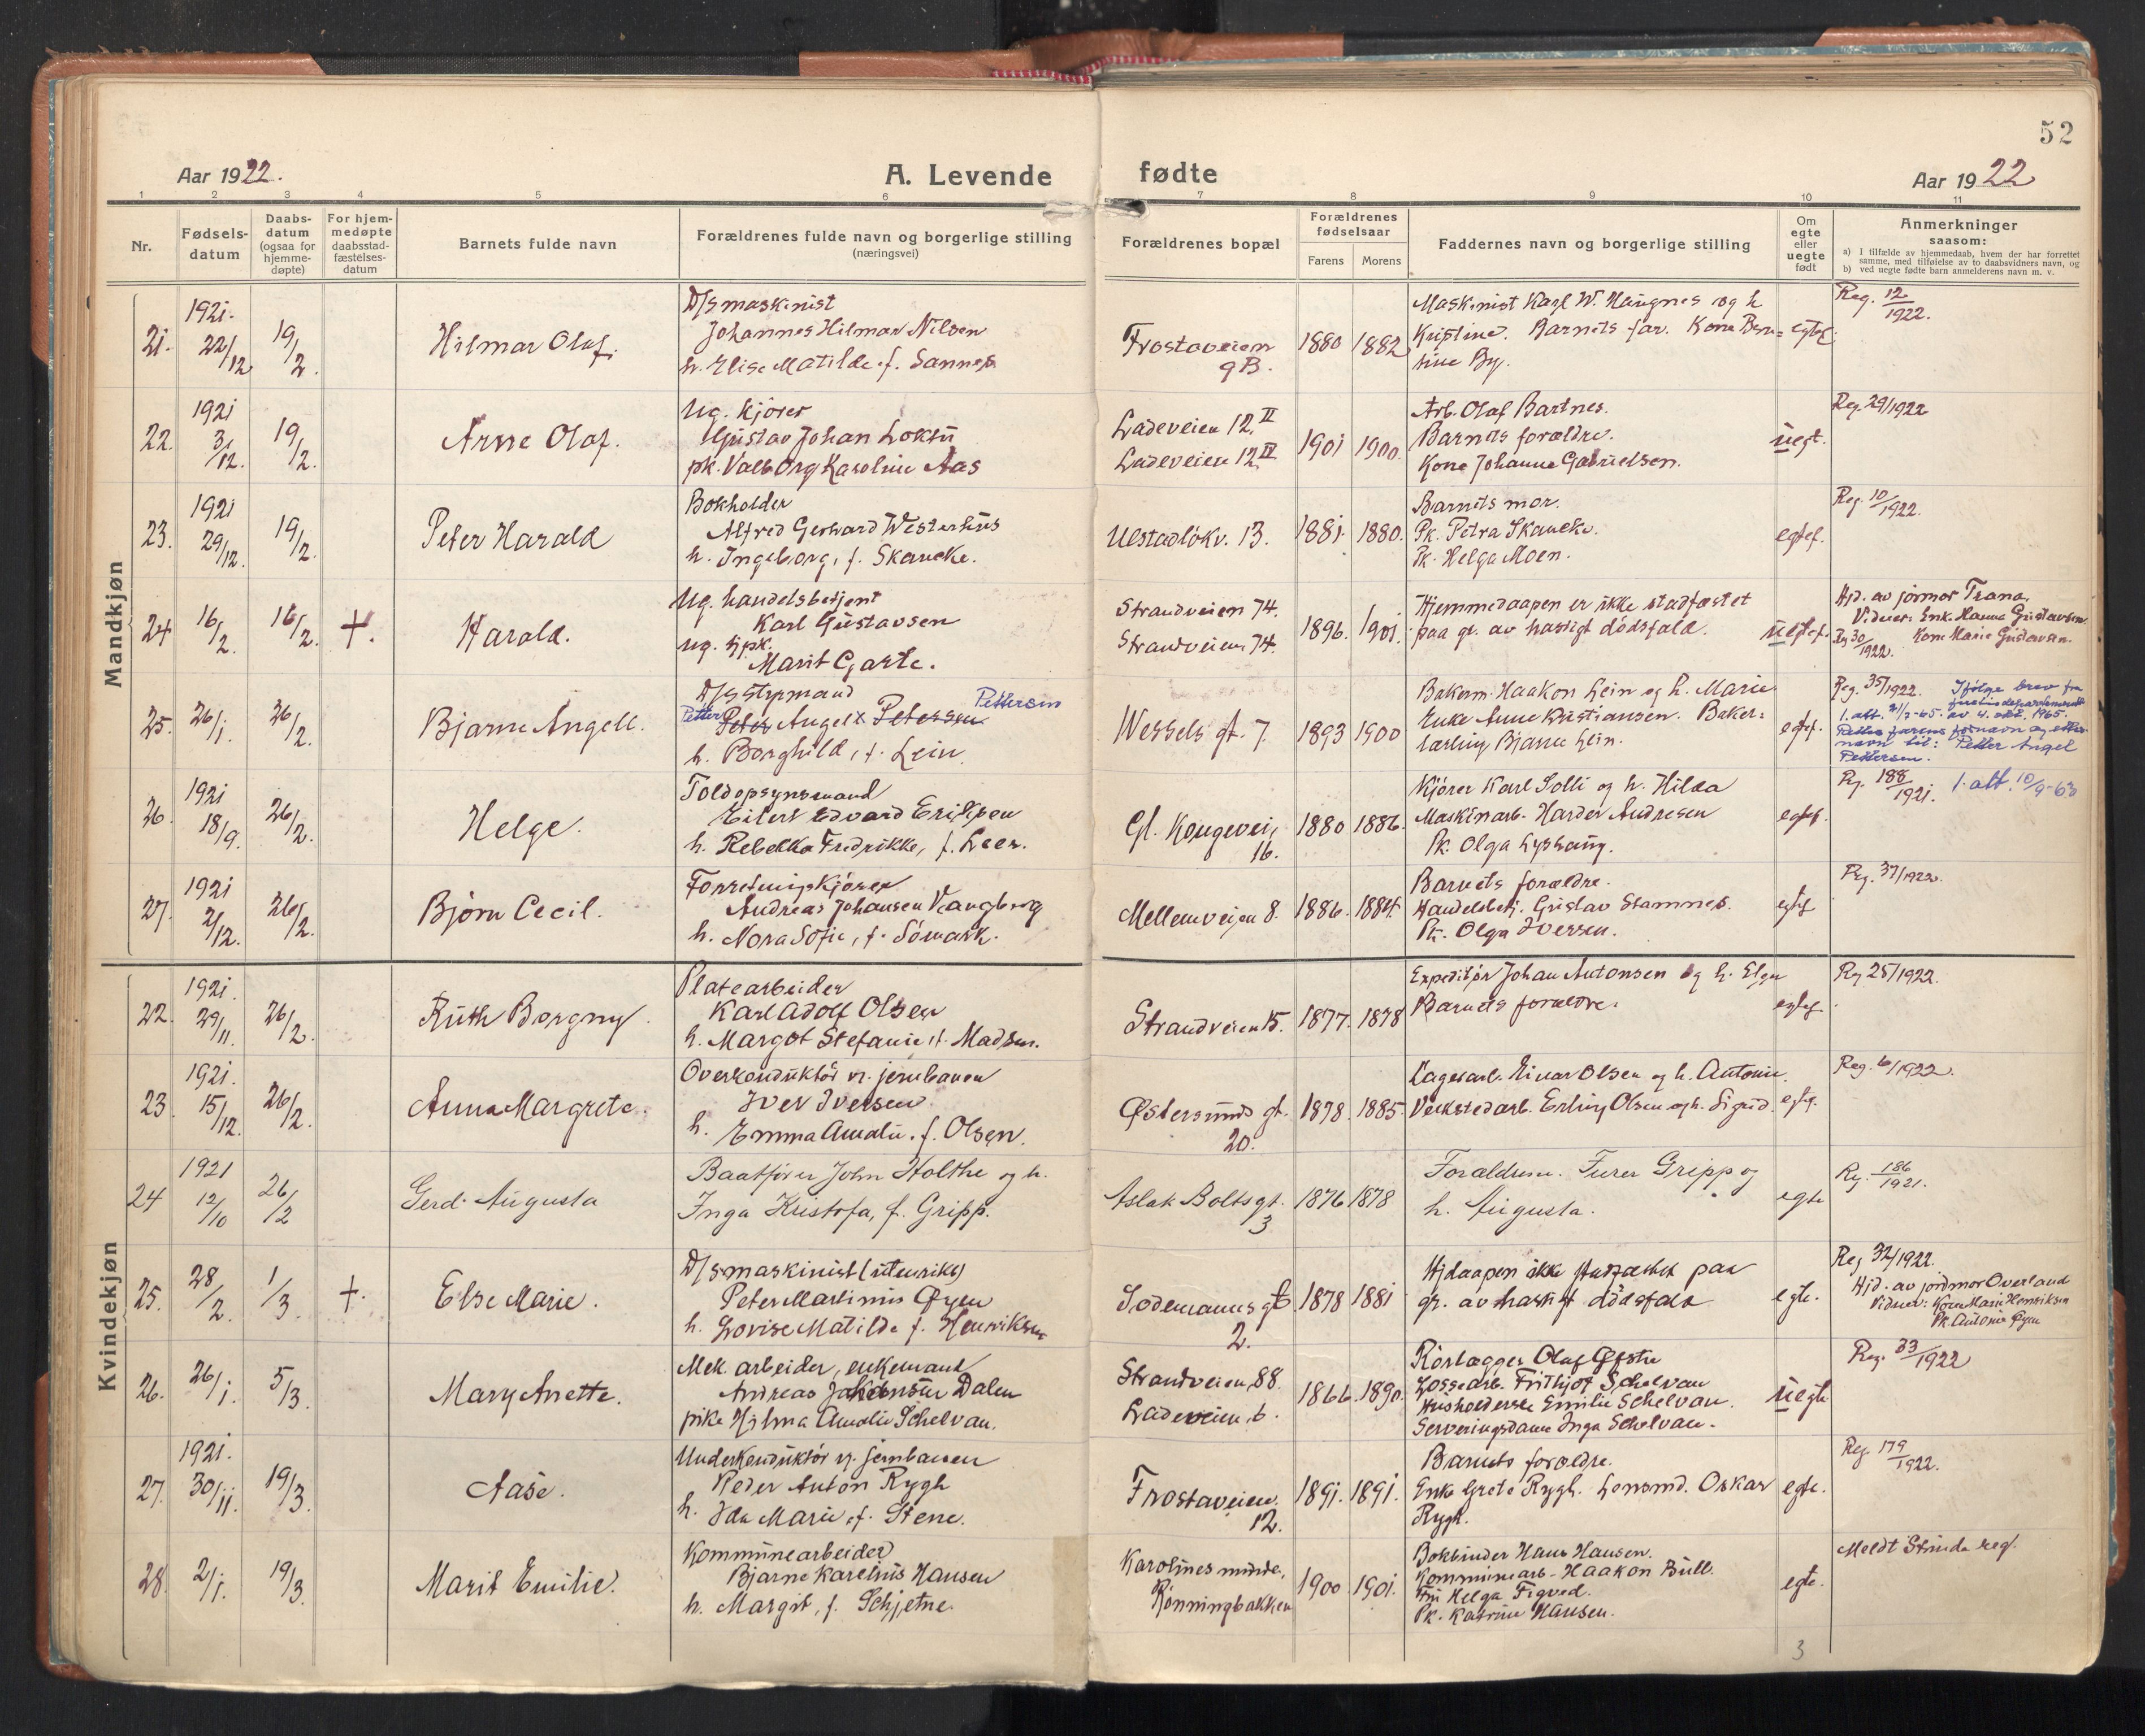 52
Aar 1922.
A. Levende
fødte
Aar 1922
1 2 3 4 5 6 7 8 9 10 11
Nr.
Fødsels-
datum
Daabs-
datum
(ogsaa for
hjemme-
døpte)
For hjem-
medøpte
daabsstad-
fæstelses-
datum
Barnets fulde navn
Forældrenes fulde navn og borgerlige stilling
(næringsvei)
Forældrenes bopæl
Forældrenes
fødselsaar
Farens
Morens
Faddernes navn og borgerlige stilling
Om
egte
eller
uegte
født
Anmerkninger
saasom:
a) I tilfælde av hjemmedaab, hvem der har forrettet
samme, med tilføielse av to daabsvidners navn, og
b) ved uegte fødte barn anmelderens navn m. v.
Mandkjøn
21.
1921.
22/12
19/2.
Hilmar Olaf.
D/S maskinist
Johannes Hilmar Nilsen
h. Elise Matilde f. Sannes
Frostaveien
9B.
1880 1882
Maskinist Karl W. Haugnes og h
Kristine. Barnets far. Kone Bern=
tine By.
egtef.
Reg. 12/1922.
22.
1921
3/12.
19/2.
Arne Olaf.
Ug. kjører
Gustav Johan Loktu
pk. Valborg Karoline Aas
Ladeveien 12 II
Ladeveien 12 II
1901 1900.
Arb. Olaf Bartnes.
Barnets forældre.
Kone Johanne Gabrielsen.
uegt.
Reg. 29/1922
23.
1921
29/12.
19/2.
Peter Harald
Bokholder
Alfred Gerhard Westerhus
h. Ingeborg, f. Skancke.
Ulstadløkv. 13.
1881. 1880.
Barnets mor.
Pk. Petra Skancke.
Pk. Helga Moen.
egtef.
Reg. 10/1922.
24
16/2.
16/2.
+.
Harald.
Ug. handelsbetjent
Karl Gustavsen
ug. tjpk.
Marit Garte.
Strandveien 74.
Strandveien 74.
1896. 1901.
Hjemmedaapen er ikke stadfæstet
paa gr. av hastigt dødsfald.
uegtef.
Hjd. av jormor Trana,
Vidner: Enk. Hanna Gustavsen
Kone Marie Gustavsen.
Reg 30/1922.
25.
26/1.
26/2.
Bjarne Angell.
D/S styrmand
Pettersen
Petter Peter Angel Petersen
h. Borghild, f. Lein.
Wessels gt. 7.
1893 1900
Bakerm. Haakon Lein og h. Marie
Enke Anne Kristiansen. Baker=
lærling Bjarne Lein.
egtef.
Reg. 35/1922. Ifølge brev fra
justisdepartementet
av 4. okt. 1965.
Rettes farens fornavn og etter-
navn til: Petter Angel
Pettersen.
26.
1921
18/9.
26/2.
Helge.
Toldopsynsmand
Eilert Edvard Eriksen
h. Rebekka Fredrikke, f. Leer.
Gl. Kongevei,
16.
1880 1886.
Kjører Karl Solli og h. Hilda
Maskinarb. Harder Andresen
Pk. Olga Lyshaug.
egtef.
Reg. 188/1921. 1. att. 10/9-63
27.
1921
2/12.
26/2.
Bjørn Cecil.
Forretningskjører
Andreas Johansen Vangberg
h. Nora Sofie, f. Sømark.
Mellemveien 8.
1886. 1884.
Barnets forældre.
Handelsbetj. Gustav Stamnes.
Pk. Olga Iversen.
egtef
Reg. 37/1922.
Kvindekjøn
22.
1921.
29/11.
26/2.
Ruth Borgny.
Platearbeider
Karl Adolf Olsen
h. Margot Stefanie, f. Madsen.
Strandveien 15.
1877. 1878
Expeditør Johan Antonsen og h. Elga
Barnets forældre.
egtef
Reg 25/1922.
23.
1921.
15/12.
26/2.
Anna Margrete.
Overkonduktør v. jernbanen
Iver Iversen
h. Emma Amalie. f. Olsen.
Østersunds gt.
20.
1878. 1885.
Lagerarb. Einar Olsen og h. Antonie.
Verkstedarb. Erling Olsen og h. Sigrid.
egte.
Reg. 6/1922.
24
1921
12/10
26/2
Gerd Augusta
Baatfører John Holthe og h.
Inga Kristofa, f. Gripp.
Aslak Bolts gt.
3
1876 1878
Forældrene. Furer Gripp og
h. Augusta.
egte
Reg. 186/1921.
25.
28/2.
1/3.
+.
Else Marie.
D/S maskinist (utenriks)
Peter Martinus Øyen
h. Lovise Matilde f. Henriksen
Sodemanns gt
2.
1878 1881
Hjdaapen ikke stadfæstet paa
gr. av hastigt dødsfald
egte.
Reg 32/1922.
Hjd. av jordmor Overland
Vidner: Kone Marie Henriksen
Pk. Antonie Øyen
26.
26/1.
5/3.
Mary Anette.
Mek. arbeider, enkemand
Andreas Johansen Dalen
pike Hilma Amalie Schelvan.
Strandveien 88.
Ladeveien 6.
1866. 1890.
Rørlægger Olaf Øfsti
Lossearb. Frithjof Schelvan
Husholderske Emilie Schelvan.
Serveringsdame Inga Schelvan.
uegte
Reg. 33/1922
27.
1921.
30/11.
19/3.
Aase.
Underkonduktør v. jernbanen
Peder Anton Rygh
h. Ida Marie, f. Stene.
Frostaveien.
12.
1891. 1891.
Barnets forældre.
Enke Grete Rygh. Lensmd. Oskar
Rygh.
egte.
Reg 179/1922.
28.
2/1.
19/3.
Marit Emilie.
Kommunearbeider
Bjarne Karelius Hansen
h. Margit, f. Schjetne.
Karolines minde,
Rønningbakken
1900 1901.
Bokbinder Hans Hansen.
Kommunearb. Haakon Bull.
Fru Helga Figved.
Pk. Katrine Hansen.
egte.
Meldt Strinda reg.
3